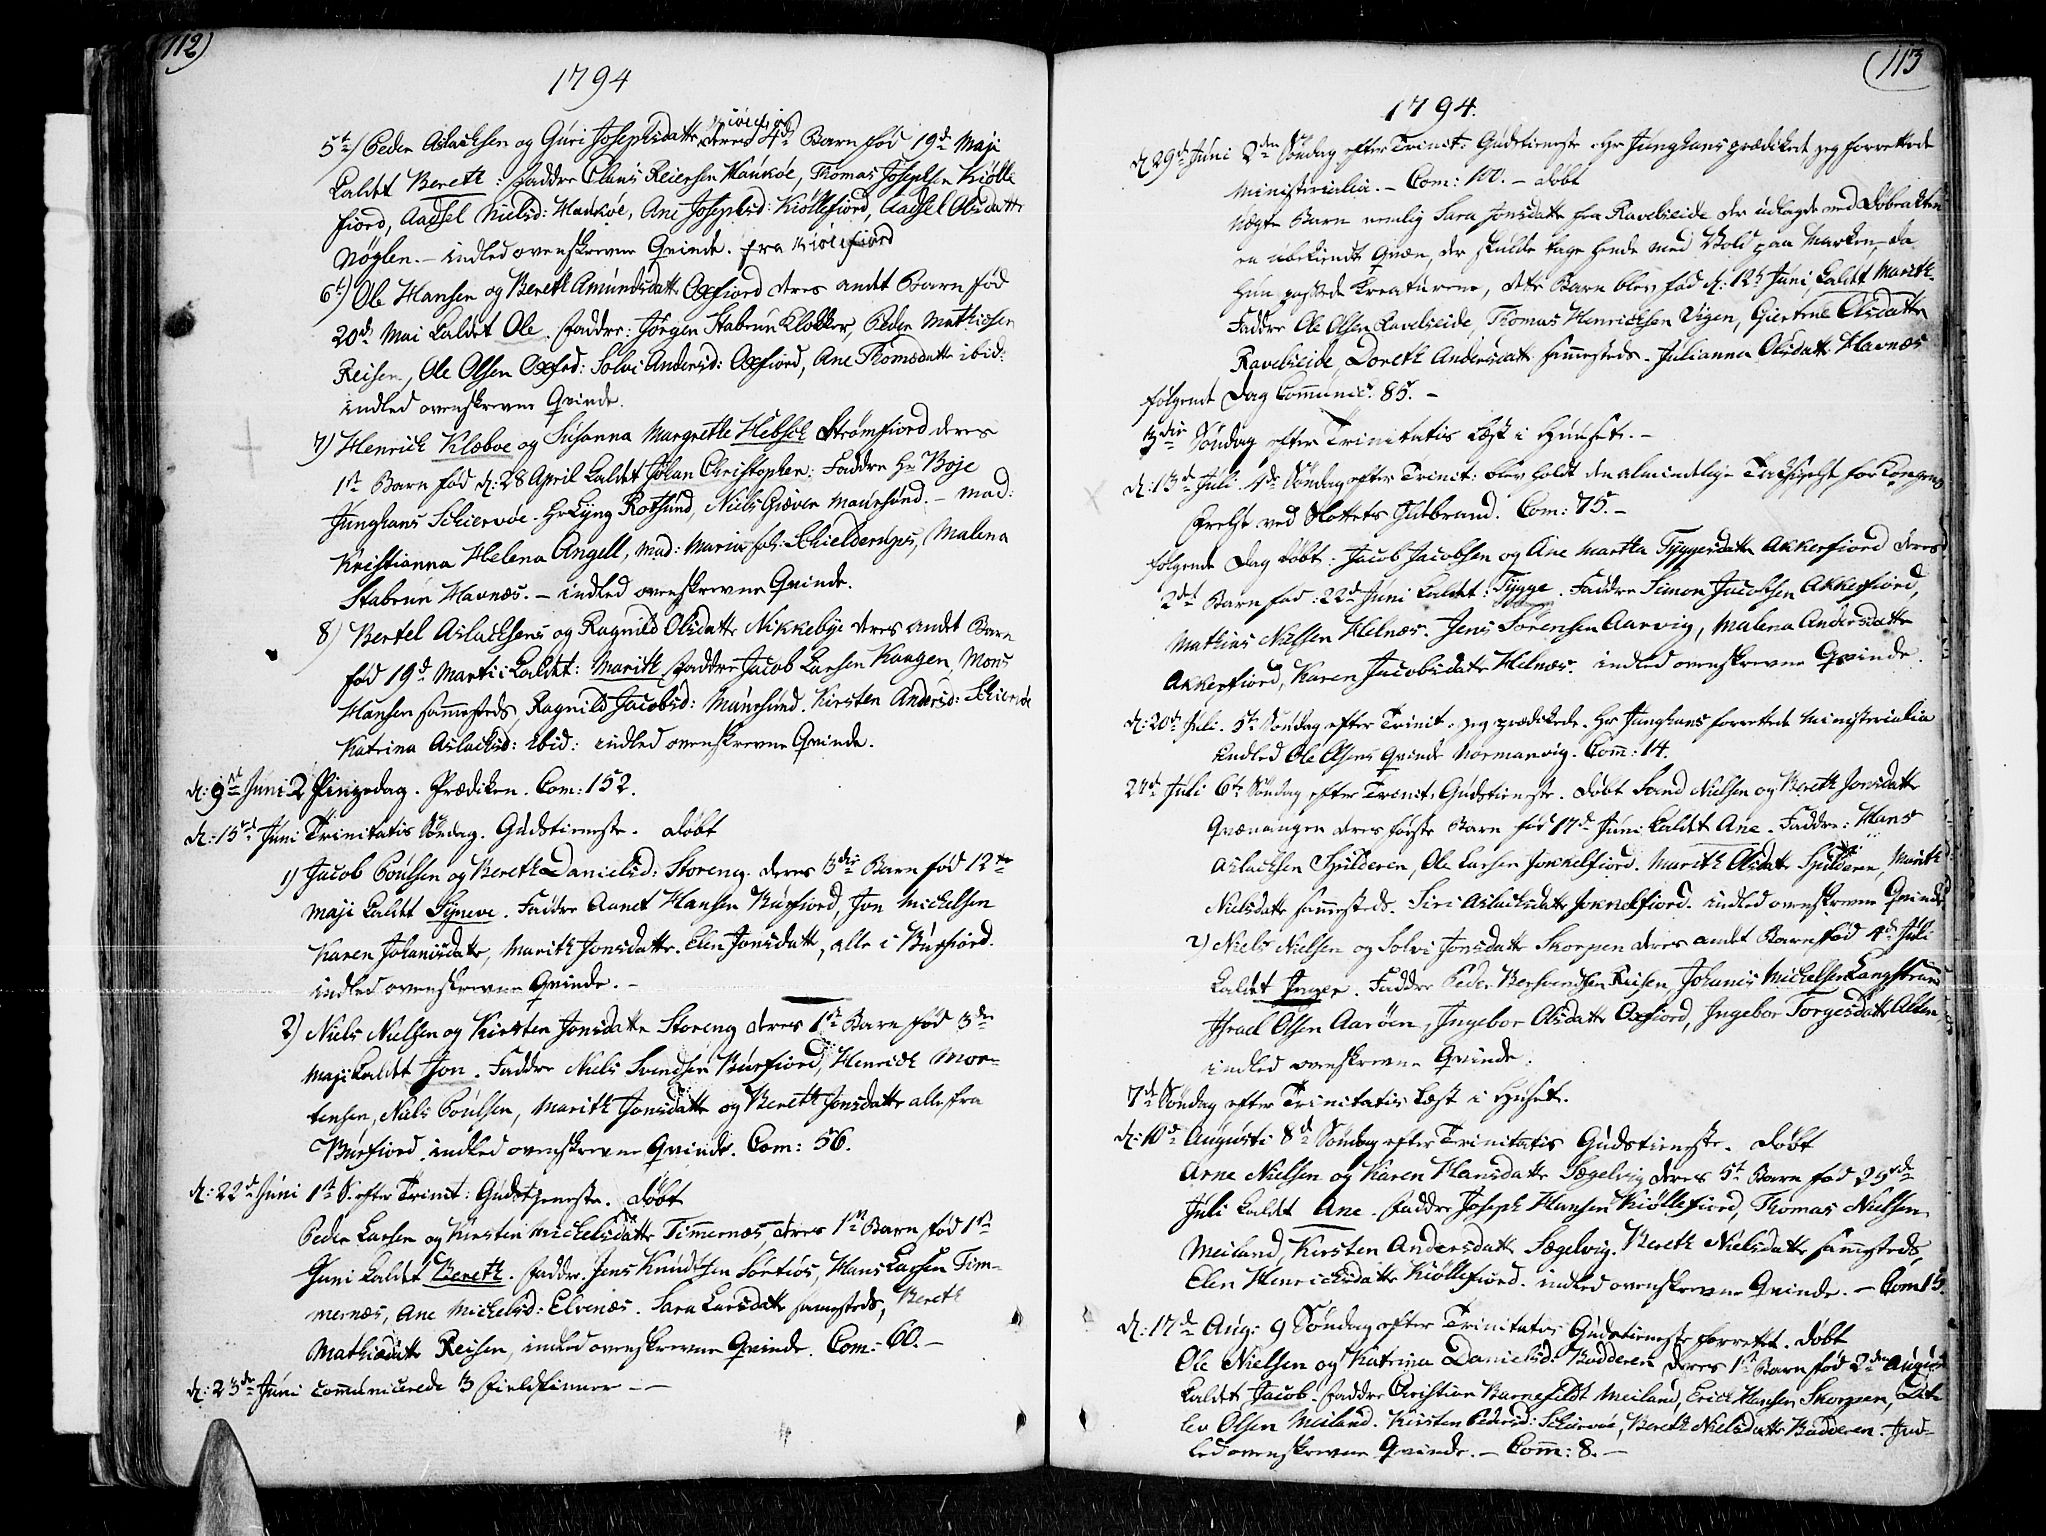 112)
1794
5te) Peder Aslachsen og Guri Josephsdatter deres 4de Barn fød 19de Maji
kaldet Bereth: Faddre Claus Reiersen Haukøe, Thomas Josephsen Kiølle
fiord, Aadsel Nielsd: Haukøe, Ane Josephsd: Kiøllefiord, Aadsel Olsdatter
Nøglen. – indled ovenskrevne Qvinde. fra Kiøllefiord
6te) Ole Hansen og Bereth Amundsdatter Oxfiord deres andet Barn fød
20de Mai kaldet Ole. Faddre: Jørgen Stabrun Klokker, Peder Mathiesen
Reisen, Ole Olsen Oxford: Solvi Andersd: Oxfiord, Ane Thomsdatter ibid:
indled ovenskrevne Qvinde.
7) Henrich Klæboe og Susanna Margrethe Hebsch Strømfiord deres
1ste Barn fød d: 28 April kaldet Johan Christopher: Faddre Hr Boje
Junghans Schiervøe. Hr Lyng Rotsund, Niels Giæver Maursund. – Mad:
Kristianna Helena Angell, Mad: Maria Schielderups, Malena
Stabrun Havnæs. – indled ovenskrevne Qvinde.
8) Bertel Aslachsens og Ragnild Olsdatter Nikkebye deres andet Barn
fød 19de Martii kaldet: Marith. Faddre Jacob Larsen Kaagen, Mons
Hansen sammesteds, Ragnild Jacobsd: Maursund. Kirsten Andersd: Schiervøe
Katrina Aslachsd: ibid: indled ovenskrevne Qvinde.
d: 9de Juni 2 Pinzedag. Prædiken. Com: 152.
d: 15de Juni Trinitatis Søndag. Gudstieneste. døbt
1) Jacob Poulsen og Bereth Danielsd: Storeng deres 3die Barn fød 12te
Maji kaldet Syneve. Faddre Aanet Hansen Burfiord, Jon Michelsen
Karen Johanisdatter, Marith Jonsdatter. Elen Jonsdatt, alle i Burfiord.
indled ovenskrevne Qvinde. –
2) Niels Nielsen og Kirsten Jonsdatter Storeng deres 1ste Barn fød 3de
Maji kaldet Jon. Faddre Niels Svendsen Burfiord, Henrich Mor-
tensen, Niels Poulsen, Marith Jonsdatter og Bereth Jonsdatter alle fra
Burfiord. indled ovenskrevne Qvinde. Com: 56.
d: 22de Juni 1ste S. efter Trinit: Gudstjeneste. døbt
Peder Larsen og Kirsten Michelsdatter Timmernæs, deres 1ste Barn fød 1ste
Juni kaldet Bereth. Faddre. Jens Knudtsen Sørkios, Hans Larsen Tim-
mernæs, Ane Michelsd: Elvenæs. Sara Larsdatter sammesteds, Bereth
Mathisdatter Reisen, indled ovenskrevne Qvinde. Com: 60. –
d: 23de Juni communicerede 3 Fieldfinner – –
(113
1794.
d: 29de Juni 2den Søndag efter Trinit: Gudstieneste. Hr Junghans prædikede jeg forrettede
Ministerialia. – Com: 100. – døbt
Uægte Barn nemlig Sara Jonsdatter fra Ravelseide der udlagde
en ubekiendt Qvæn, der skulde tage hende med Vold paa Marken, da
hun passede Creaturene, dette Barn blev fød d: 12te Juni, kaldet Marith
Faddre Ole Olsen Ravelseide, Thomas Henrichsen Vigen, Giertrue Olsdatter
Ravelseide, Doreth Andersdatter sammesteds. Julianna Olsdatter Havnæs
følgende Dag Communic: 85. –
3die Søndag efter Trinitatis læst i Huuset. –
d: 13de Juli. 4de Søndag efter Trinit: blev holdt den almindelige Taksigelse for Kongens
Frelse ved Slottets Ildbrand. Com: 75. –
følgende Dag døbt. Jacob Jacobsen og Ane Martha Tyggesdatter Akkerfiord deres
2det Barn fød: 22de Juni kaldet: Tygge. Faddre Simon Jacobsen Akkerfiord,
Mathias Nielsen Helnæs. Jens Sørensen Aarvig, Malena Andersdatter
Akkerfiord, Karen Jacobsdatter Helnæs. indled ovenskrevne Qvinde.
d: 20de Juli. 5te Søndag efter Trinit: jeg prædikede. Hr Junghans forrettede Ministerialia
indled Ole Olsens Qvinde Normanvig. Com: 14.
27de Juli 6te Søndag efter Trinit: Gudstieneste. døbt Nielsen og Bereth Jonsdatter
Qvænangen deres første Barn fød 17de Juni kaldet Ane. Faddre: Hans
Aslachsen Spilderen, Ole Larsen Jøkkelfiord. Marith Olsdatter Spilderen, Marith
Nielsdatter sammesteds. Siri Aslachsdatter Jøkkelfiord. indled ovenskrevne Qvinde
2) Niels Nielsen og Solvi Jonsdatter Skorpen deres andet Barn fød 4de Juli
kaldet Inger. Faddre Peder Bersvendsen Reisen, Johanes Michelsen Langstrand
Israel Olsen Aarøen, Ingebor Olsdatter Oxfiord, Ingebor Torgesdatter Alten,
indled ovenskrevne Qvinde.
7de Søndag efter Trinitatis læst i Huset.
d: 10de Augusti 8de Søndag efter Trinitatis Gudstieneste. døbt
Arne Nielsen og Karen Hansdatter Segelvig deres 5te Barn fød 25de
Juli kaldet Ane. Faddre Joseph Hansen Kiøllefiord, Thomas Nielsen
Meiland, Kirsten Andersdatter Segelvig. Bereth Nielsdatter sammesteds,
Elen Henrichsdatter Kiøllefiord. indled ovenskrevne Qvinde. – Com 15.
d: 17de Aug: 9 Søndag efter Trinitatis Gudstieneste forrettet. døbt
Ole Nielsen og Katrina Danielsd: Badderen deres 1ste Barn fød 2den Augusti
kaldet Jacob. Faddre Christian Barnefeldt Meiland, Erich Hansen Skorpen,
Olsen Meiland. Kirsten Pedersd: Schiervøe, Bereth Nielsdatter Badderen. Ind-
led ovenskrevne Qvinde. – Com: 8. –